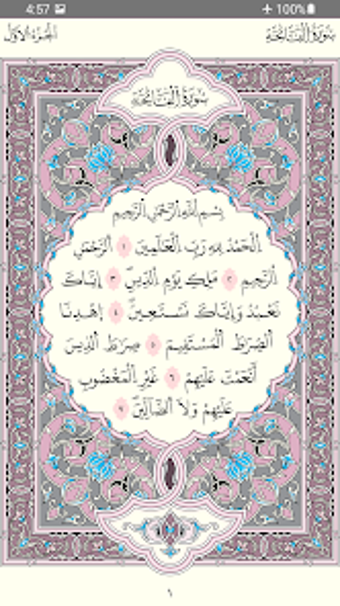 4:57 100%
سُورَةُ الْفَاتِحَةِ الجزء الأول
سُورَةُ الْفَاتِحَةِ
بِسْمِ اللَّهِ الرَّحْمَٰنِ الرَّحِيمِ
الْحَمْدُ لِلَّهِ رَبِّ الْعَالَمِينَ ١ الرَّحْمَٰنِ
الرَّحِيمِ ٢ مَلِكِ يَوْمِ الدِّينِ ٣ إِيَّاكَ
نَعْبُدُ وَإِيَّاكَ نَسْتَعِينُ ٤ اِهْدِنَا
الصِّرَاطَ الْمُسْتَقِيمَ ٥ صِرَاطَ الَّذِينَ
أَنْعَمْتَ عَلَيْهِمْ ٦ غَيْرِ الْمَغْضُوبِ
عَلَيْهِمْ وَلَا الضَّالِّينَ ٧
١